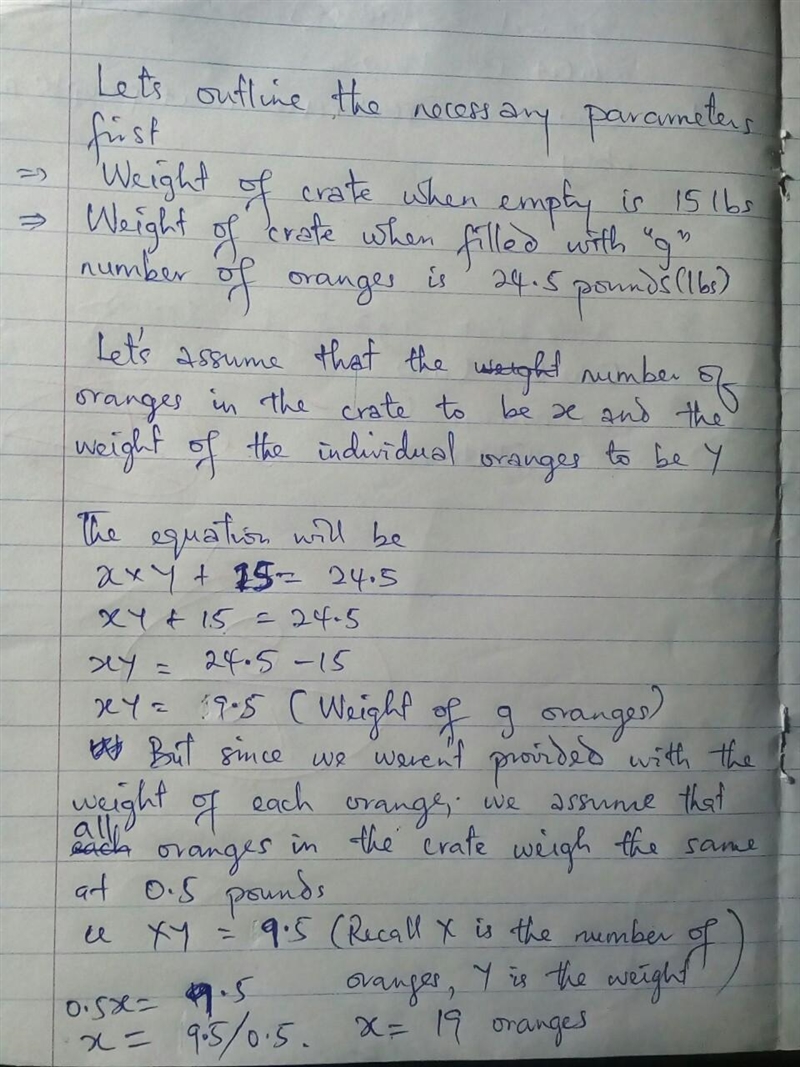 Lets outline the necessary parameters
first
⇒ Weight of crate when empty is 15 lbs
⇒ Weight of crate when filled with "g"
number of oranges is 24.5 pounds (lbs)
Let's assume that the weight number of
oranges in the crate to be x and the
weight of the individual oranges to be Y
The equation will be
x × Y + 15 = 24.5
xY + 15 = 24.5
xY = 24.5 - 15
xY = 9.5 (Weight of g oranges)
But since we weren't provided with the
weight of each orange, we assume that
all
each oranges in the crate weigh the same
at 0.5 pounds
XY = 9.5 (Recall X is the number of
oranges, Y is the weight)
0.5x = 9.5
x = 9.5/0.5. x = 19 oranges